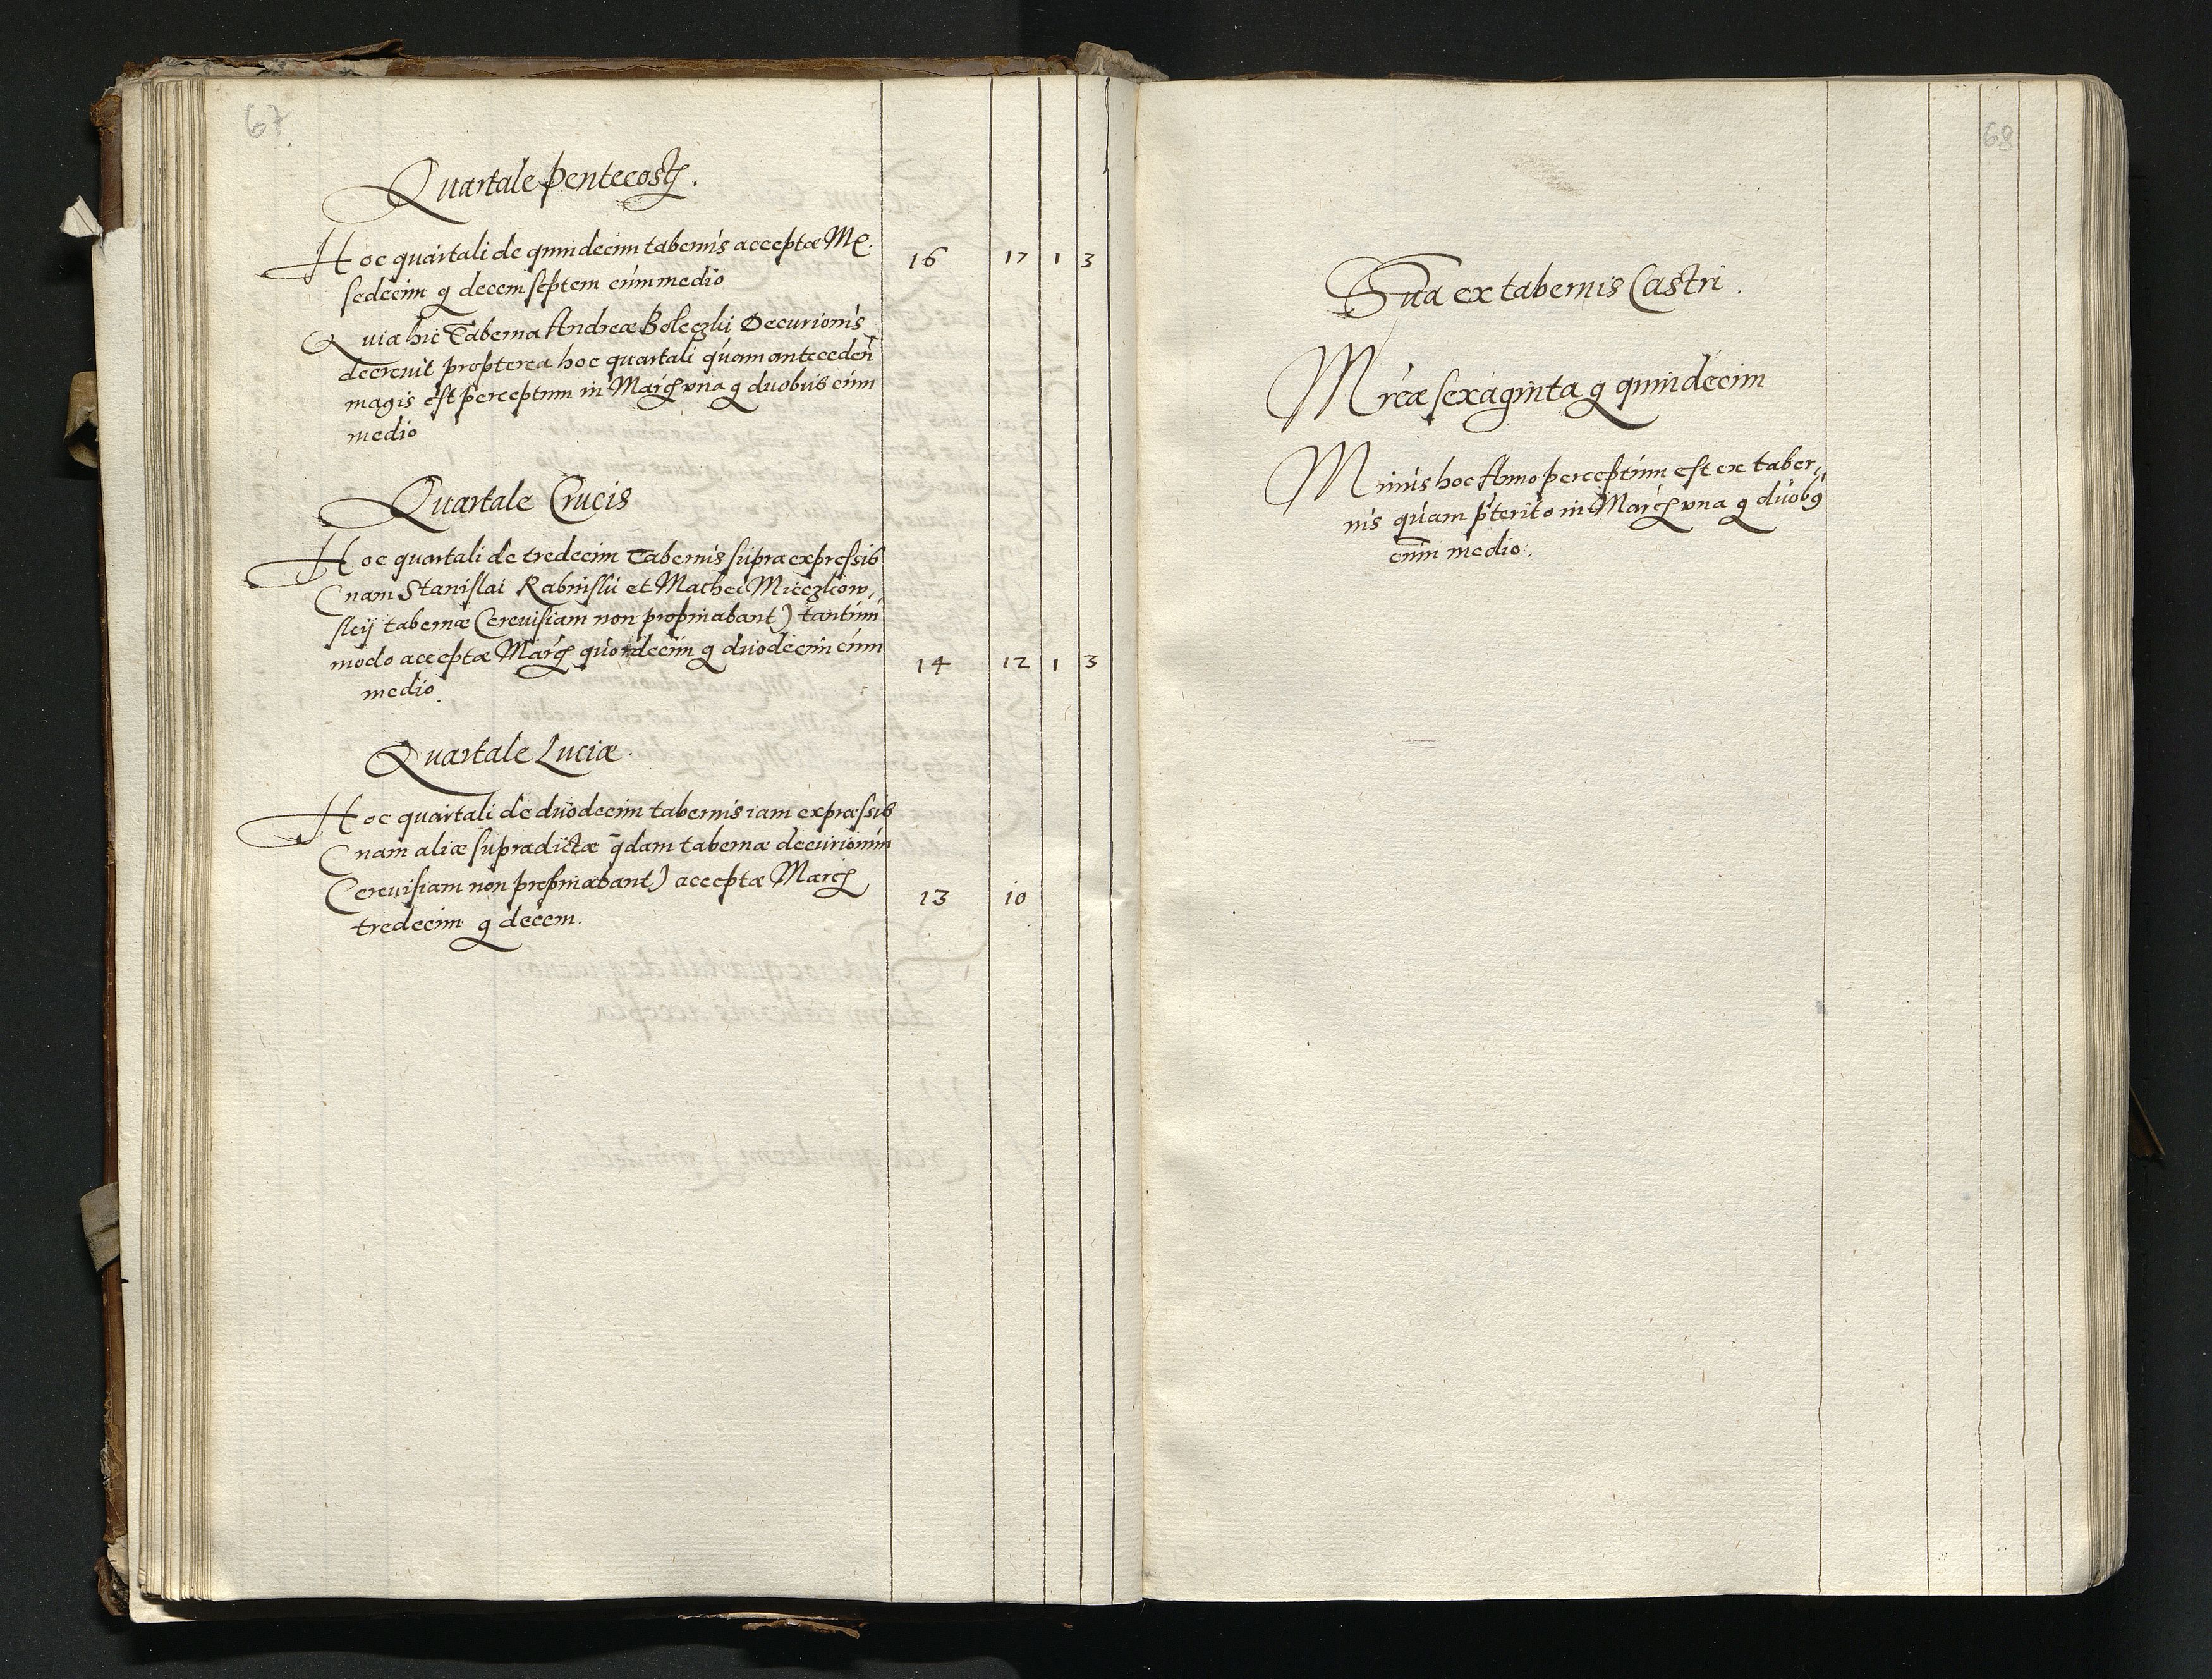 67
Quartale Pentecostꝭ.
Hoc quartali de quindecim tabernis acceptæ Mꝭ.
sedecim g decem septem cum medio 16 17 1 3
Quia hic Taberna Andreæ Boleczki Decurionis
decrevit propterea hoc quartali quam anteceden̄
magis est perceptum in Marcꝭ vna g duobus cum
medio
Quartale Crucis
Hoc quartali de tredecim Tabernis supra expressis
(nam Stanislai et Mathei
tabernæ Cereuisiam non propinabant) tantum
modo acceptæ Marcꝭ quordecim g duodecim cum 14 12 1 3
medio.
Quartale Luciæ.
Hoc quartali de duodecim tabernis iam expræssis
(nam aliæ supradictæ q̄dam tabernæ decurionum
Cereuisiam non propinabant) acceptæ Marcꝭ
tredecim g decem. 13 10
68
Sūa ex tabernis Castri.
Mrcæ sexaginta g quindecim
Minus hoc Anno perceptum est ex taber„
nis quam p̄terito in Marcꝭ vna g duobꝯ
cum medio.